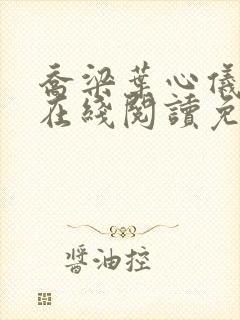 喬梁葉心儀
在綫閱讀免
醬油控